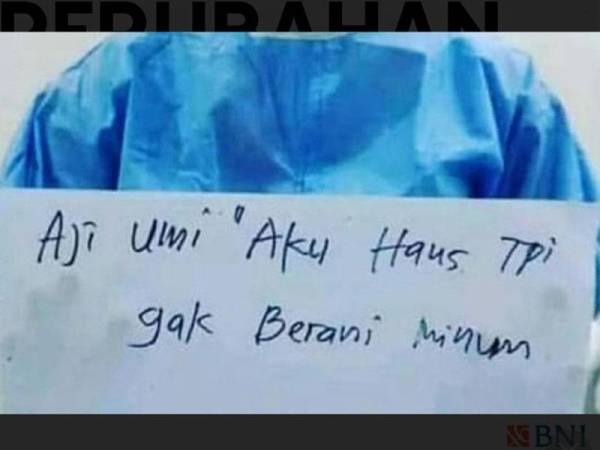 PERUBAHAN
Aji Umi "Aku Haus Tpi
gak Berani Minum
BNI